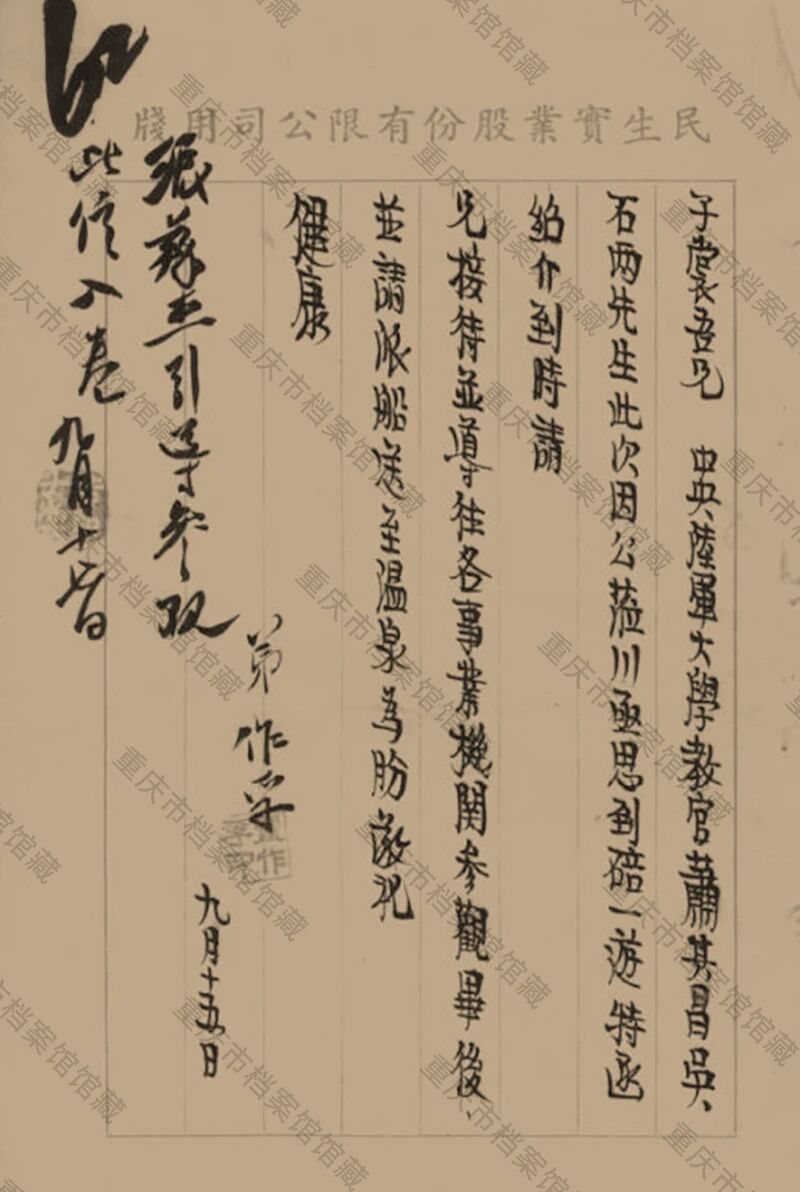 民生實業股份有限公司用牋
子裳吾兄 中央陸軍大學教官蕭其昌吳
石两先生此次因公蒞川亟思到碚一遊特函
紹介到時請
兄接待並導往各事業機関参觀畢後、
並請派船送至温泉為盼敬祝
健康
弟 作孚
九月十五日
引導参观
此信入卷 九月十六日
重庆市档案馆馆藏